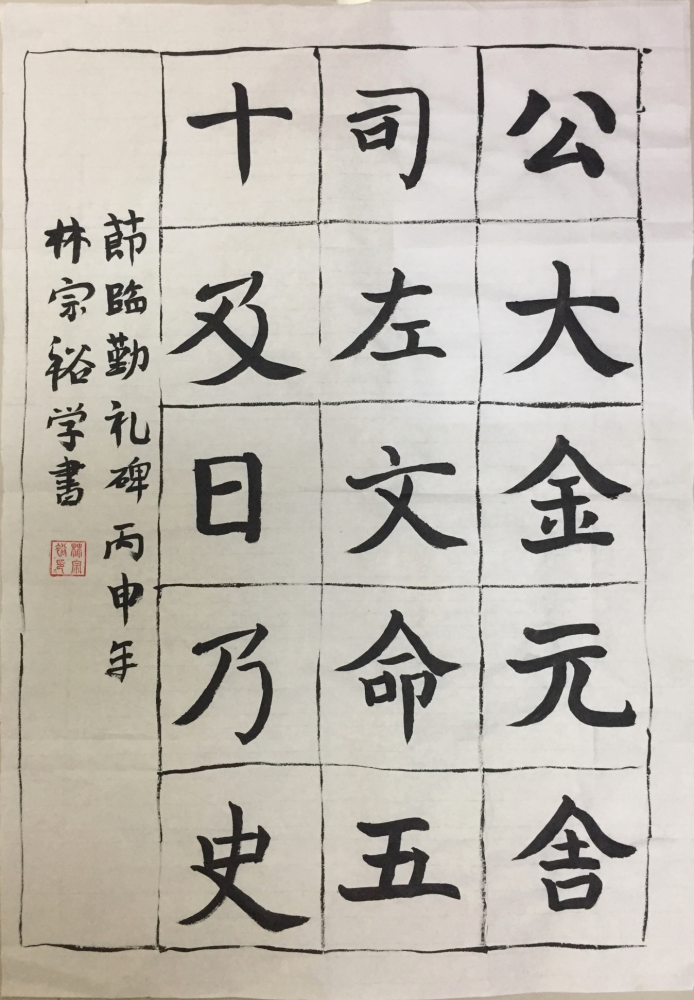 公大金元舍
司左文命五
十及日乃史
節临勤礼碑丙申年
林宗裕学書